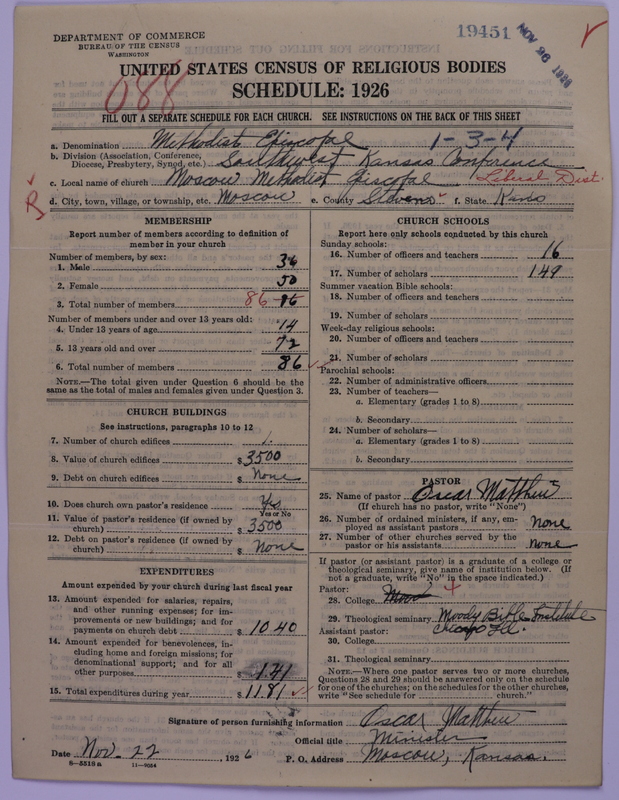 DEPARTMENT OF COMMERCE
BUREAU OF THE CENSUS
WASHINGTON
19451
NOV 26 1926
UNITED STATES CENSUS OF RELIGIOUS BODIES
SCHEDULE: 1926
088
FILL OUT A SEPARATE SCHEDULE FOR EACH CHURCH. SEE INSTRUCTIONS ON THE BACK OF THIS SHEET
a. Denomination Methodist Episcopal 1-3-4
b. Division (Association, Conference, Diocese, Presbytery, Synod, etc.) Southwest Kansas Conference
c. Local name of church Moscow Methodist Episcopal Liberal Dist.
d. City, town, village, or township, etc. Moscow e. County Stevens f. State Kans
MEMBERSHIP
Report number of members according to definition of member in your church
Number of members, by sex:
1. Male 36
2. Female 50
3. Total number of members 86
Number of members under and over 13 years old:
4. Under 13 years of age 14
5. 13 years old and over 72
6. Total number of members 86
NOTE.—The total given under Question 6 should be the same as the total of males and females given under Question 3.
CHURCH BUILDINGS
See instructions, paragraphs 10 to 12
7. Number of church edifices 1.
8. Value of church edifices $3500
9. Debt on church edifices $ None
10. Does church own pastor's residence Yes
Yes or No
11. Value of pastor's residence (if owned by church) $ 3500
12. Debt on pastor's residence (if owned by church) $ None
EXPENDITURES
Amount expended by your church during last fiscal year
13. Amount expended for salaries, repairs, and other running expenses; for improvements or new buildings; and for payments on church debt $ 1040
14. Amount expended for benevolences, including home and foreign missions; for denominational support; and for all other purposes $ 141
15. Total expenditures during year $ 1181
CHURCH SCHOOLS
Report here only schools conducted by this church
Sunday schools:
16. Number of officers and teachers 16
17. Number of scholars 149
Summer vacation Bible schools:
18. Number of officers and teachers
19. Number of scholars
Week-day religious schools:
20. Number of officers and teachers
21. Number of scholars
Parochial schools:
22. Number of administrative officers
23. Number of teachers—
a. Elementary (grades 1 to 8)
b. Secondary
24. Number of scholars—
a. Elementary (grades 1 to 8)
b. Secondary
PASTOR
25. Name of pastor Oscar Matthew
(If church has no pastor, write "None")
26. Number of ordained ministers, if any, employed as assistant pastors None
27. Number of other churches served by the pastor or his assistants None
If pastor (or assistant pastor) is a graduate of a college or theological seminary, give name of institution below. (If not a graduate, write "No" in the space indicated.)
Pastor:
28. College
29. Theological seminary Moody Bible Institute
Chicago Ill.
Assistant pastor:
30. College
31. Theological seminary
NOTE.—Where one pastor serves two or more churches, Questions 28 and 29 should be answered only on the schedule for one of the churches; on the schedules for the other churches, write "See schedule for church."
Signature of person furnishing information Oscar Matthew
Official title Minister
Date Nov. 22, 1926 P. O. Address Moscow, Kansas.
8-5518a 11-9054